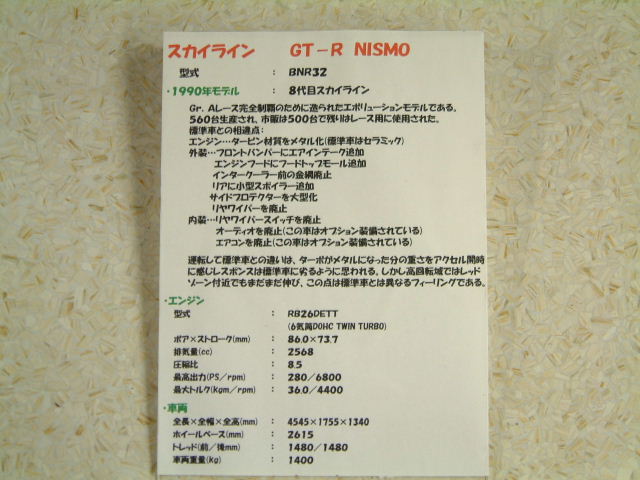 スカイライン GT-R NISMO
型式 : BNR32
・1990年モデル : 8代目スカイライン
Gr. Aレース完全制覇のために造られたエボリューションモデルである。
560台生産され、市販は500台で残りはレース用に使用された。
標準車との相違点:
エンジン…タービン材質をメタル化(標準車はセラミック)
外装…フロントバンパーにエアインテーク追加
エンジンフードにフードトップモール追加
インタークーラー前の金網廃止
リアに小型スポイラー追加
サイドプロテクターを大型化
リヤワイパーを廃止
内装…リヤワイパースイッチを廃止
オーディオを廃止(この車はオプション装備されている)
エアコンを廃止(この車はオプション装備されている)
運転して標準車との違いは、ターボがメタルになった分の重さをアクセル開時
に感じレスポンスは標準車に劣るように思われる。しかし高回転域ではレッド
ゾーン付近でもまだまだ伸び、この点は標準車とは異なるフィーリングである。
・エンジン
型式 : RB26DETT
(6気筒DOHC TWIN TURBO)
ボア×ストローク(mm) : 86.0×73.7
排気量(cc) : 2568
圧縮比 : 8.5
最高出力(PS/rpm) : 280/6800
最大トルク(Kgm/rpm) : 36.0/4400
・車両
全長×全幅×全高(mm) : 4545×1755×1340
ホイールベース(mm) : 2615
トレッド(前/後mm) : 1480/1480
車両重量(kg) : 1400